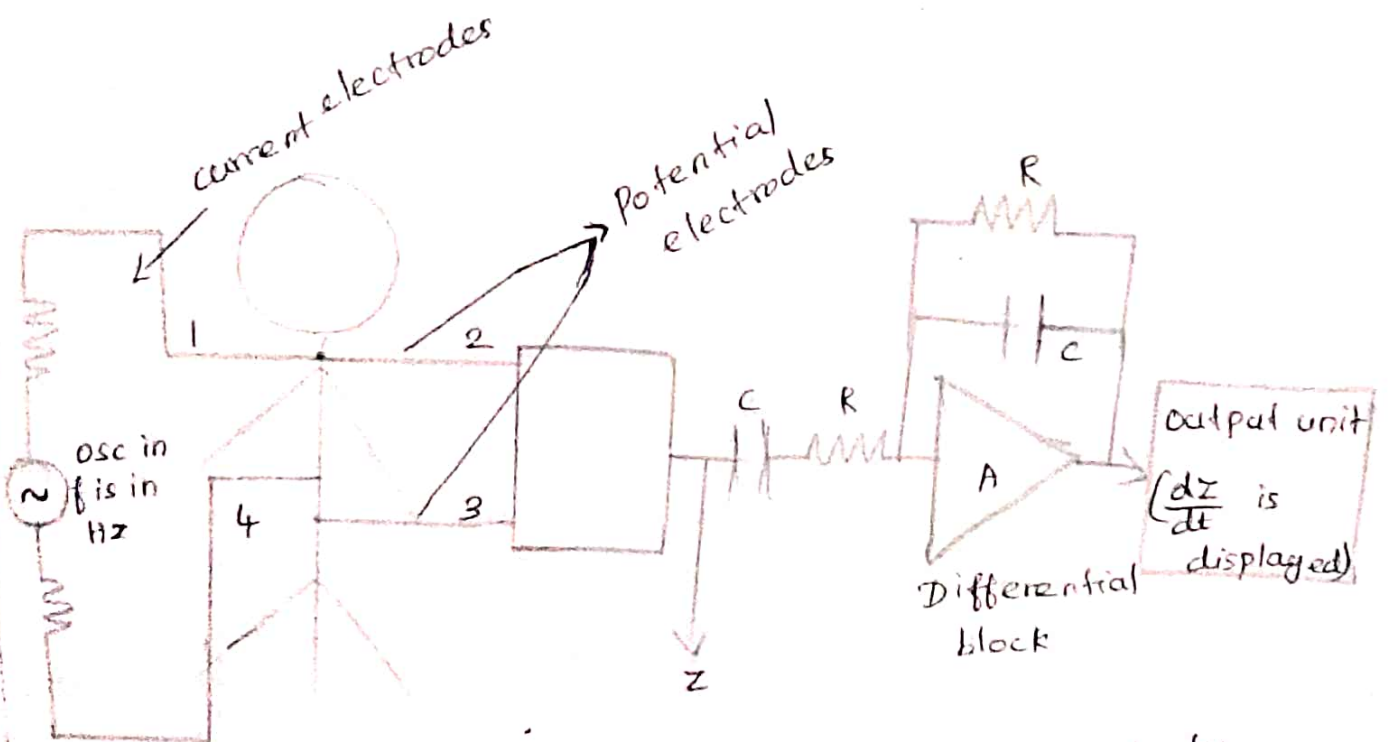 current electrodes
Potential
electrodes
R
C
1
2
C
R
osc in
f is in
Hz
~
4
3
A
Differential
block
output unit
(dz/dt is
displayed)
z